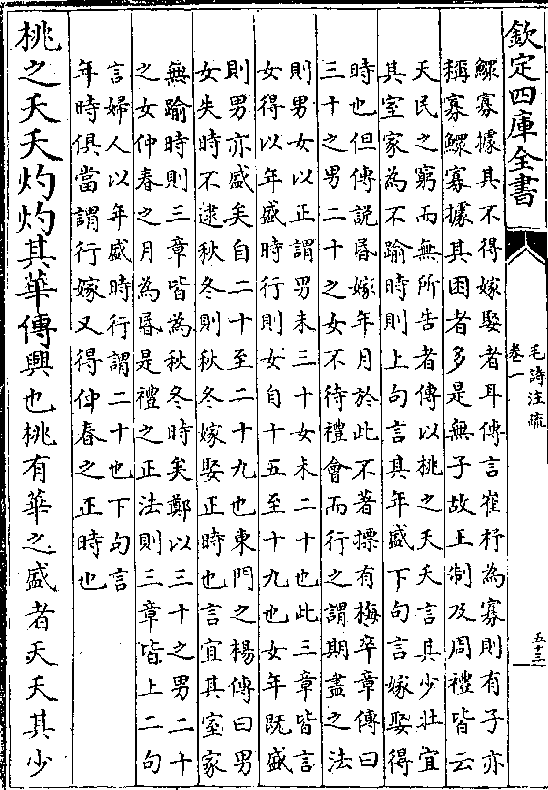 欽定四庫全書
毛詩注疏
卷一
五十三
鰥寡據其不得嫁娶者耳傳言崔杼為寡則有子亦
稱寡鰥寡據其困者多是無子故王制及周禮皆云
天民之窮而無所告者傳以桃之夭夭言其少壯宜
其室家為不踰時則上句言其年盛下句言嫁娶得
時也但傳説昏嫁年月於此不著摽有梅卒章傳曰
三十之男二十之女不待禮會而行之謂期盡之法
則男女以正謂男未三十女未二十也此三章皆言
女得以年盛時行則女自十五至十九也女年既盛
則男亦盛矣自二十至二十九也東門之楊傳曰男
女失時不逮秋冬則秋冬嫁娶正時也言宜其室家
無踰時則三章皆為秋冬時矣鄭以三十之男二十
之女仲春之月為昏是禮之正法則三章皆上二句
言婦人以年盛時行謂二十也下句言
年時俱當謂行嫁又得仲春之正時也
桃之夭夭灼灼其華傳興也桃有華之盛者夭夭其少